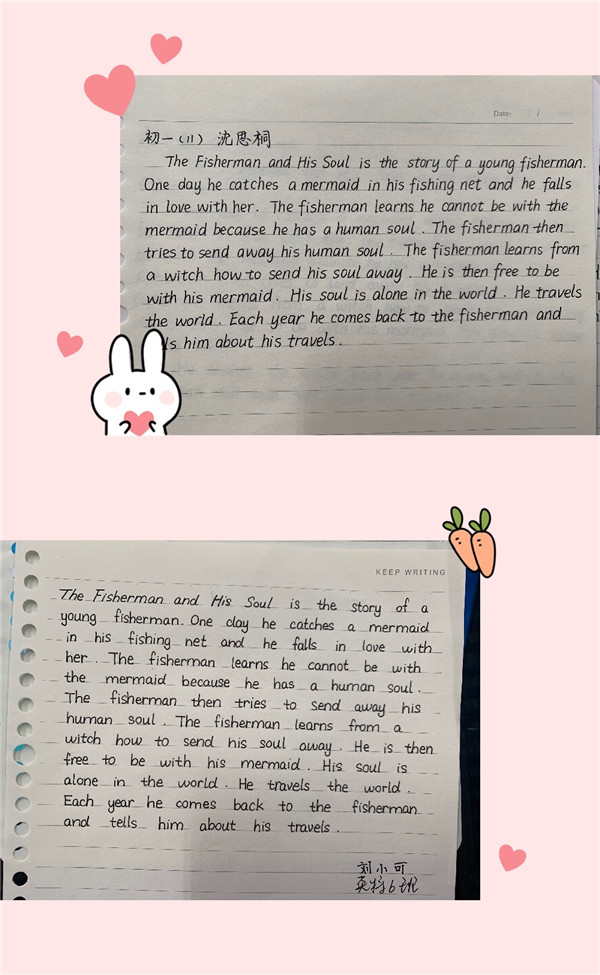 Date: /
初一(11) 沈思桐
The Fisherman and His Soul is the story of a young fisherman.
One day he catches a mermaid in his fishing net and he falls
in love with her. The fisherman learns he cannot be with the
mermaid because he has a human soul. The fisherman then
tries to send away his human soul. The fisherman learns from
a witch how to send his soul away. He is then free to be
with his mermaid. His soul is alone in the world. He travels
the world. Each year he comes back to the fisherman and
him about his travels.
KEEP WRITING
The Fisherman and His Soul is the story of a
young fisherman. One day he catches a mermaid
in his fishing net and he falls in love with
her. The fisherman learns he cannot be with
the mermaid because he has a human soul.
The fisherman then tries to send away his
human soul. The fisherman learns from a
witch how to send his soul away. He is then
free to be with his mermaid. His soul is
alone in the world. He travels the world.
Each year he comes back to the fisherman
and tells him about his travels.
刘小可
英特6班